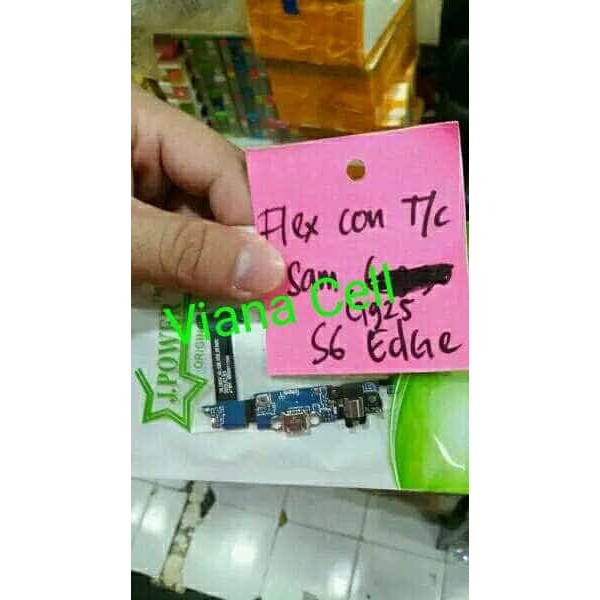 Flex con T/c
Sam
G925
S6 EdGe
Viana Cell
JPOWER
ORIGIN